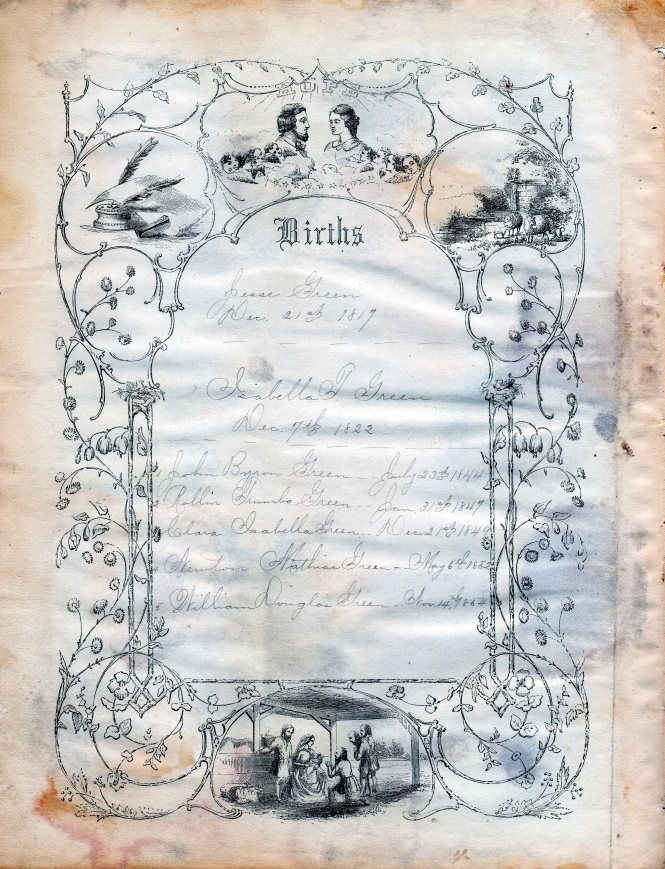 HOPE
Births
Jesse Green
Dec. 21st, 1817
Isabella T. Green
Dec. 7th 1822
John Byron Green - July 23d 1844
2 Rollin Grumbo Green - Jan. 31st 1847
Clara Isabella Green - Dec. 21st 1849
4 Newton Mathias Green - May 6th 1852
5 William Douglas Green - Nov. 14th 1854